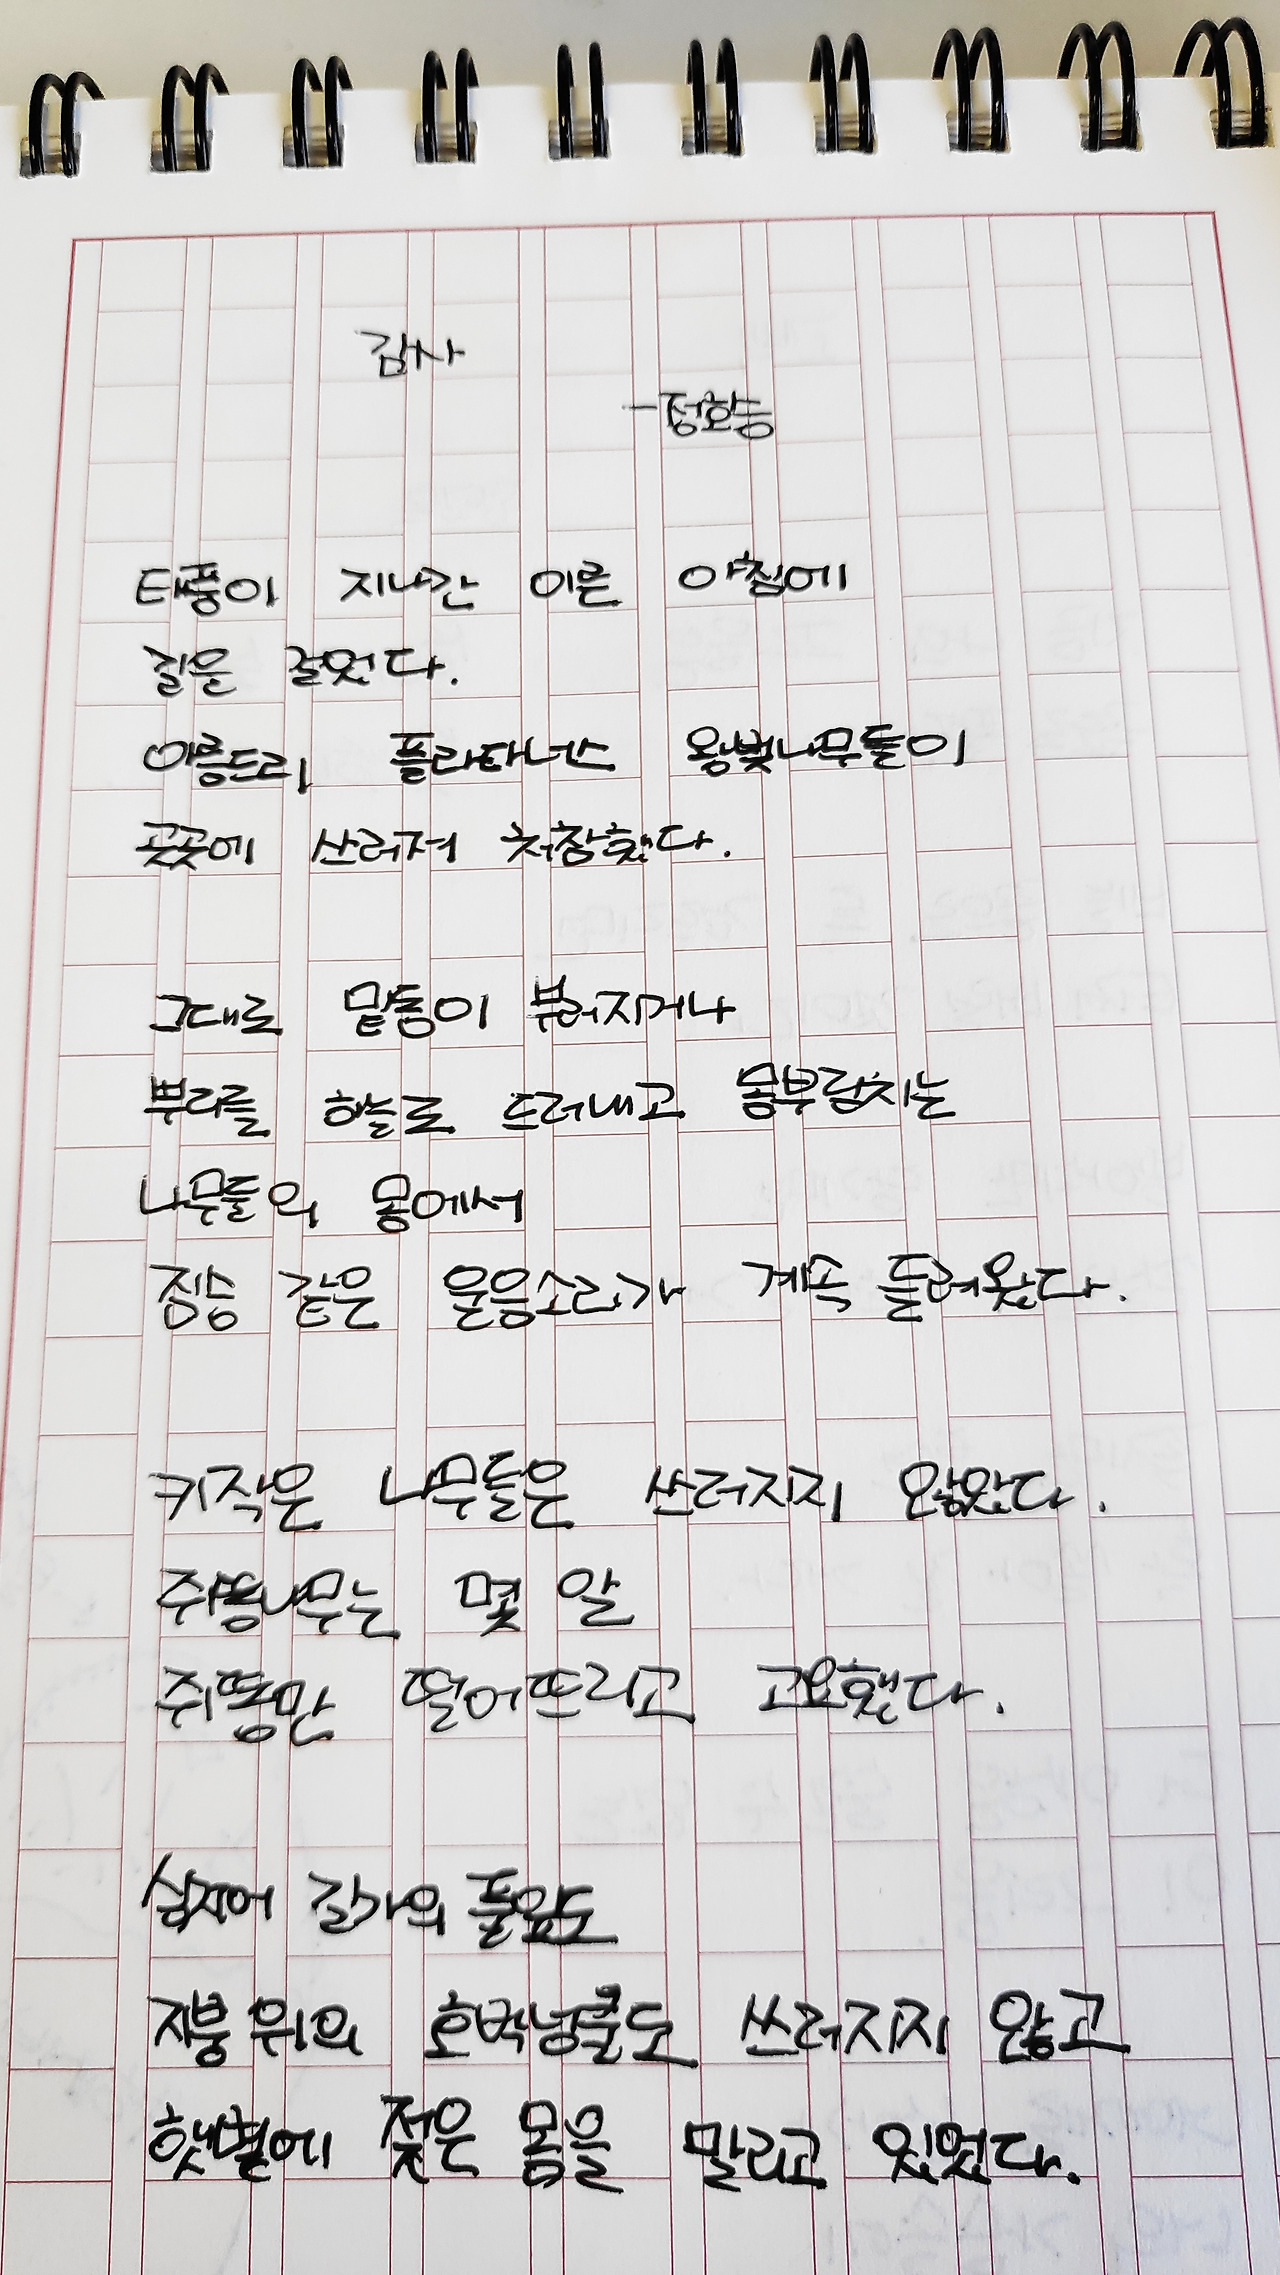 감사
-정호승
태풍이 지나간 이른 아침에
길을 걸었다.
아름드리 플라타너스 왕벚나무들이
곳곳에 쓰러져 처참했다.
그대로 밑둥이 부러지거나
뿌리를 하늘로 드러내고 몸부림치는
나무들의 몸에서
짐승 같은 울음소리가 계속 들려왔다.
키작은 나무들은 쓰러지지 않았다.
쥐똥나무는 몇 알
쥐똥만 떨어뜨리고 고요했다.
심지어 길가의 풀잎도
지붕 위의 호박넝쿨도 쓰러지지 않고
햇볕에 젖은 몸을 말리고 있었다.